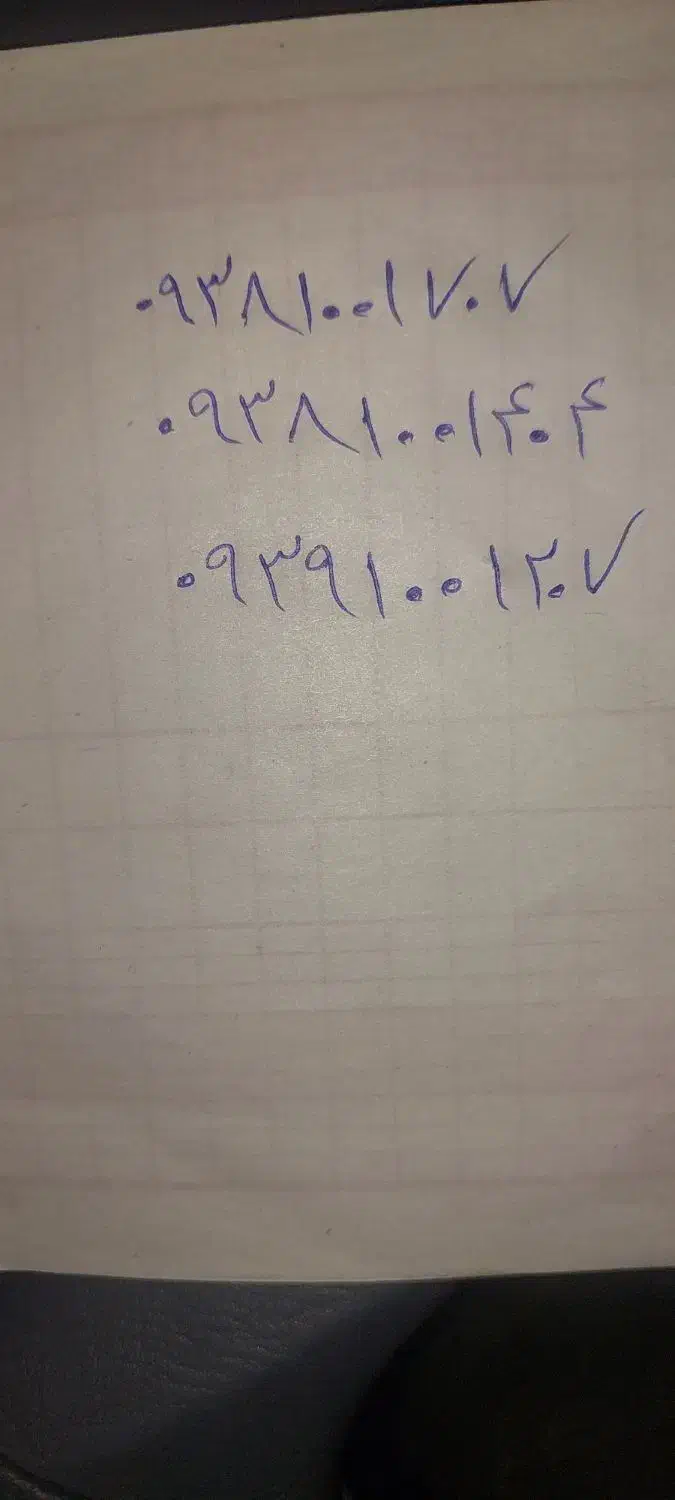 ۰۹۳۸۱۰۰۱۷۰۷
۰۹۳۸۱۰۰۱۴۰۴
۰۹۳۹۱۰۰۱۲۰۷